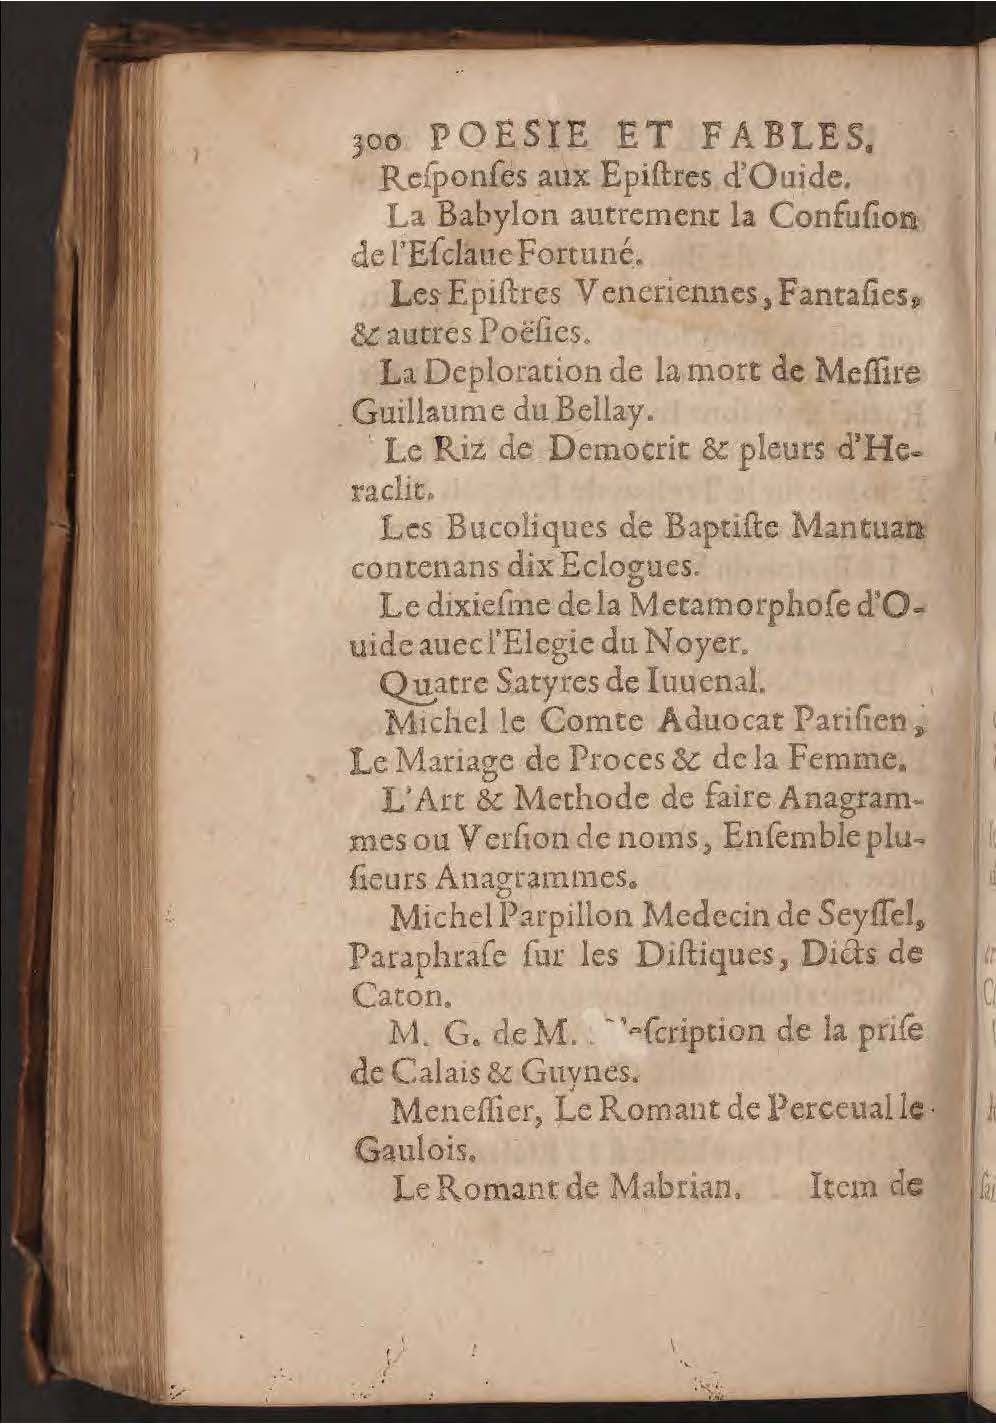 300 POESIE ET FABLES.
Reſponſes aux Epiſtres d'Ouide.
La Babylon autrement la Confuſion
de l'Eſclaue Fortuné.
Les Epiſtres Veneriennes, Fantaſies,
& autres Poëſies.
La Deploration de la mort de Meſſire
Guillaume du Bellay.
Le Riz de Democrit & pleurs d'He-
raclit.
Les Bucoliques de Baptiſte Mantuan
contenans dix Eclogues.
Le dixieſme de la Metamorphoſe d'O-
uide auec l'Elegie du Noyer.
Quatre Satyres de Iuuenal.
Michel le Comte Aduocat Pariſien,
Le Mariage de Proces & de la Femme.
L'Art & Methode de faire Anagram-
mes ou Verſion de noms, Enſemble plu-
ſieurs Anagrammes.
Michel Parpillon Medecin de Seyſſel,
Paraphraſe ſur les Diſtiques, Dicts de
Caton.
M. G. de M. de la priſe
de Calais & Guynes.
Meneſſier, Le Romant de Perceual le
Gaulois.
Le Romant de Mabrian. Item de